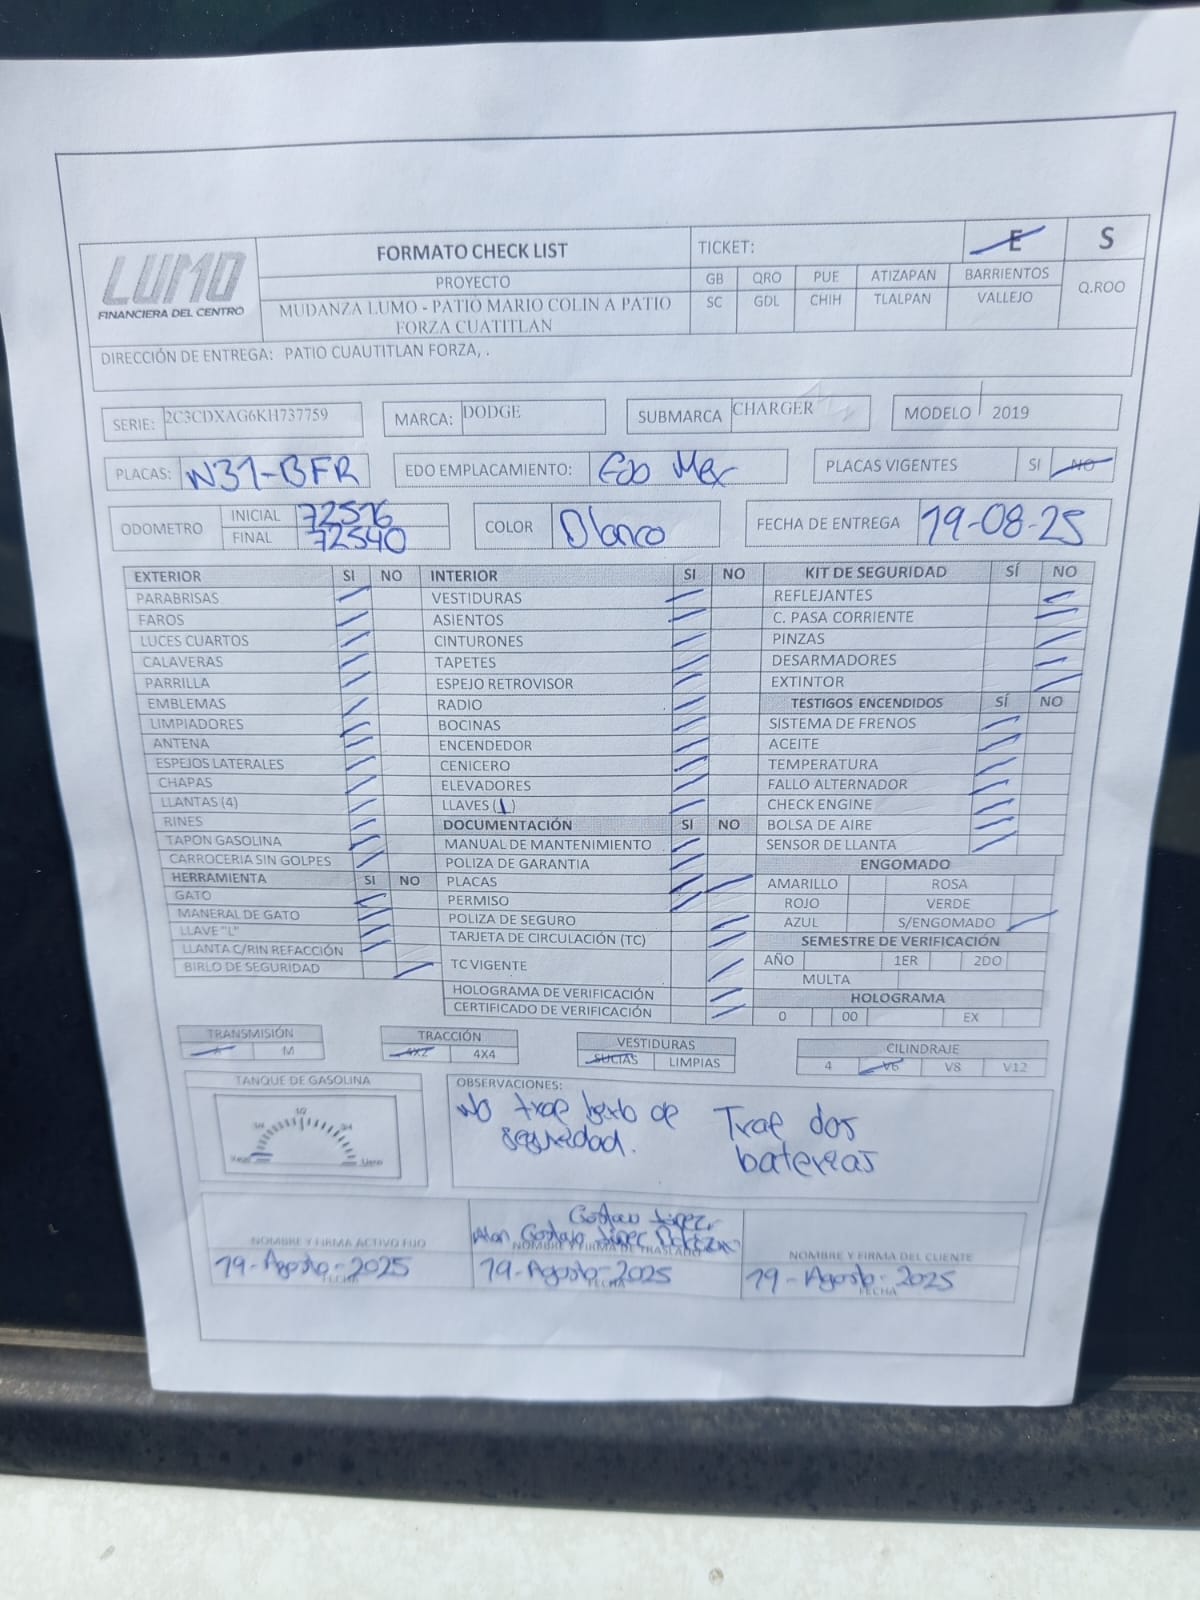 LUMO
FINANCIERA DEL CENTRO
FORMATO CHECK LIST
PROYECTO
MUDANZA LUMO - PATIO MARIO COLIN A PATIO
FORZA CUATITLAN
TICKET: E S
GB QRO PUE ATIZAPAN BARRIENTOS Q.ROO
SC GDL CHIH TLALPAN VALLEJO
DIRECCIÓN DE ENTREGA: PATIO CUAUTITLAN FORZA, .
SERIE: 2C3CDXAG6KH737759 MARCA: DODGE SUBMARCA CHARGER MODELO 2019
PLACAS: N31-BFR EDO EMPLACAMIENTO: Edo Mex PLACAS VIGENTES SI NO
ODOMETRO INICIAL 72516 COLOR Blanco FECHA DE ENTREGA 19-08-25
FINAL 72540
EXTERIOR SI NO INTERIOR SI NO KIT DE SEGURIDAD SÍ NO
PARABRISAS VESTIDURAS REFLEJANTES
FAROS ASIENTOS C. PASA CORRIENTE
LUCES CUARTOS CINTURONES PINZAS
CALAVERAS TAPETES DESARMADORES
PARRILLA ESPEJO RETROVISOR EXTINTOR
EMBLEMAS RADIO TESTIGOS ENCENDIDOS SÍ NO
LIMPIADORES BOCINAS SISTEMA DE FRENOS
ANTENA ENCENDEDOR ACEITE
ESPEJOS LATERALES CENICERO TEMPERATURA
CHAPAS ELEVADORES FALLO ALTERNADOR
LLANTAS (4) LLAVES (1) CHECK ENGINE
RINES DOCUMENTACIÓN SI NO BOLSA DE AIRE
TAPON GASOLINA MANUAL DE MANTENIMIENTO SENSOR DE LLANTA
CARROCERIA SIN GOLPES POLIZA DE GARANTIA ENGOMADO
HERRAMIENTA SI NO PLACAS AMARILLO ROSA
GATO PERMISO ROJO VERDE
MANERAL DE GATO POLIZA DE SEGURO AZUL S/ENGOMADO
LLAVE "L" TARJETA DE CIRCULACIÓN (TC) SEMESTRE DE VERIFICACIÓN
LLANTA C/RIN REFACCIÓN TC VIGENTE AÑO 1ER 2DO
BIRLO DE SEGURIDAD MULTA
HOLOGRAMA DE VERIFICACIÓN HOLOGRAMA
CERTIFICADO DE VERIFICACIÓN 0 00 EX
TRANSMISIÓN TRACCIÓN VESTIDURAS CILINDRAJE
A M 4X2 4X4 SUCIAS LIMPIAS 4 V6 V8 V12
TANQUE DE GASOLINA OBSERVACIONES:
1/4 1/2 3/4
Vacio Lleno
No trae birlo de Trae dos
seguridad. baterias
Gustavo López
Alan Gustavo López
NOMBRE Y FIRMA ACTIVO FIJO NOMBRE Y FIRMA DE TRASLADO NOMBRE Y FIRMA DEL CLIENTE
19-Agosto-2025 19-Agosto-2025 19-Agosto-2025
FECHA FECHA FECHA